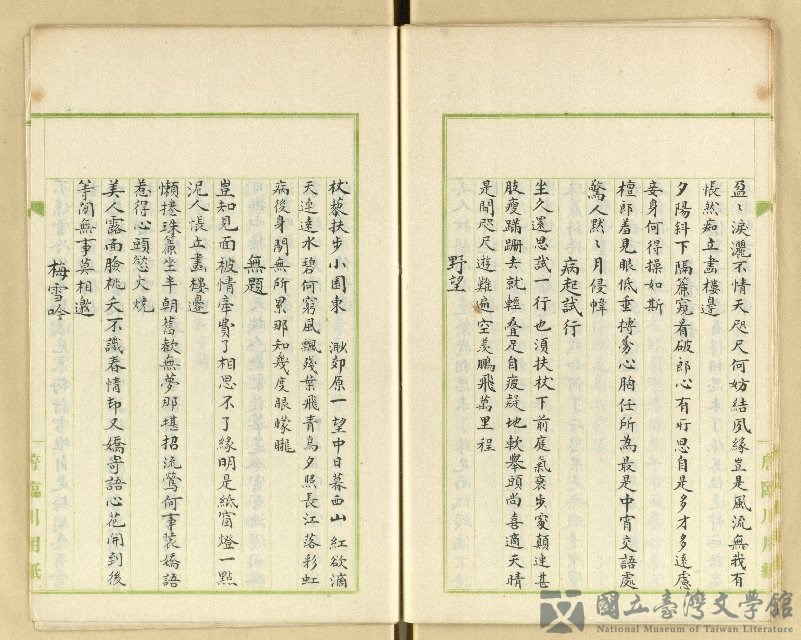 盈〻淚灑不情天咫尺何妨結夙緣豈是風流無我有
悵然痴立畫樓邊
夕陽斜下隔簾窺看破郎心有所思自是多才多遠慮
妾身何得操如斯
檀郎羞見眼低垂搏雾心胸任所為最是中宵交語處
驚人默〻月侵幃
病起試行
坐久還思試一行也須扶杖下前庭氣衰步窄顛連甚
肢瘦蹣跚去就輕叠足自疲疑地軟舉頭尚喜適天晴
是間咫尺遊難遍空羨鵬飛萬里程
野望
杖藜扶步小園東 渺郊原一望中日暮西山紅欲滴
天連遠水碧何窮風飄殘葉飛青鳥夕照長江落彩虹
病後身閒無所累那知幾度眼矇矓
無題
豈知見面被情牽費了相思不了緣明是紙窗燈一點
泥人悵立畫樓邊
懶捲珠簾坐半朝舊歡無夢那堪招流鶯何事裝嬌語
惹得心頭慾火燒
美人露面臉桃夭不識春情却又嬌寄語心花開到後
等閒無事莫相邀
梅雪吟
臨川用紙
國立臺灣文學館
National Museum of Taiwan Literature